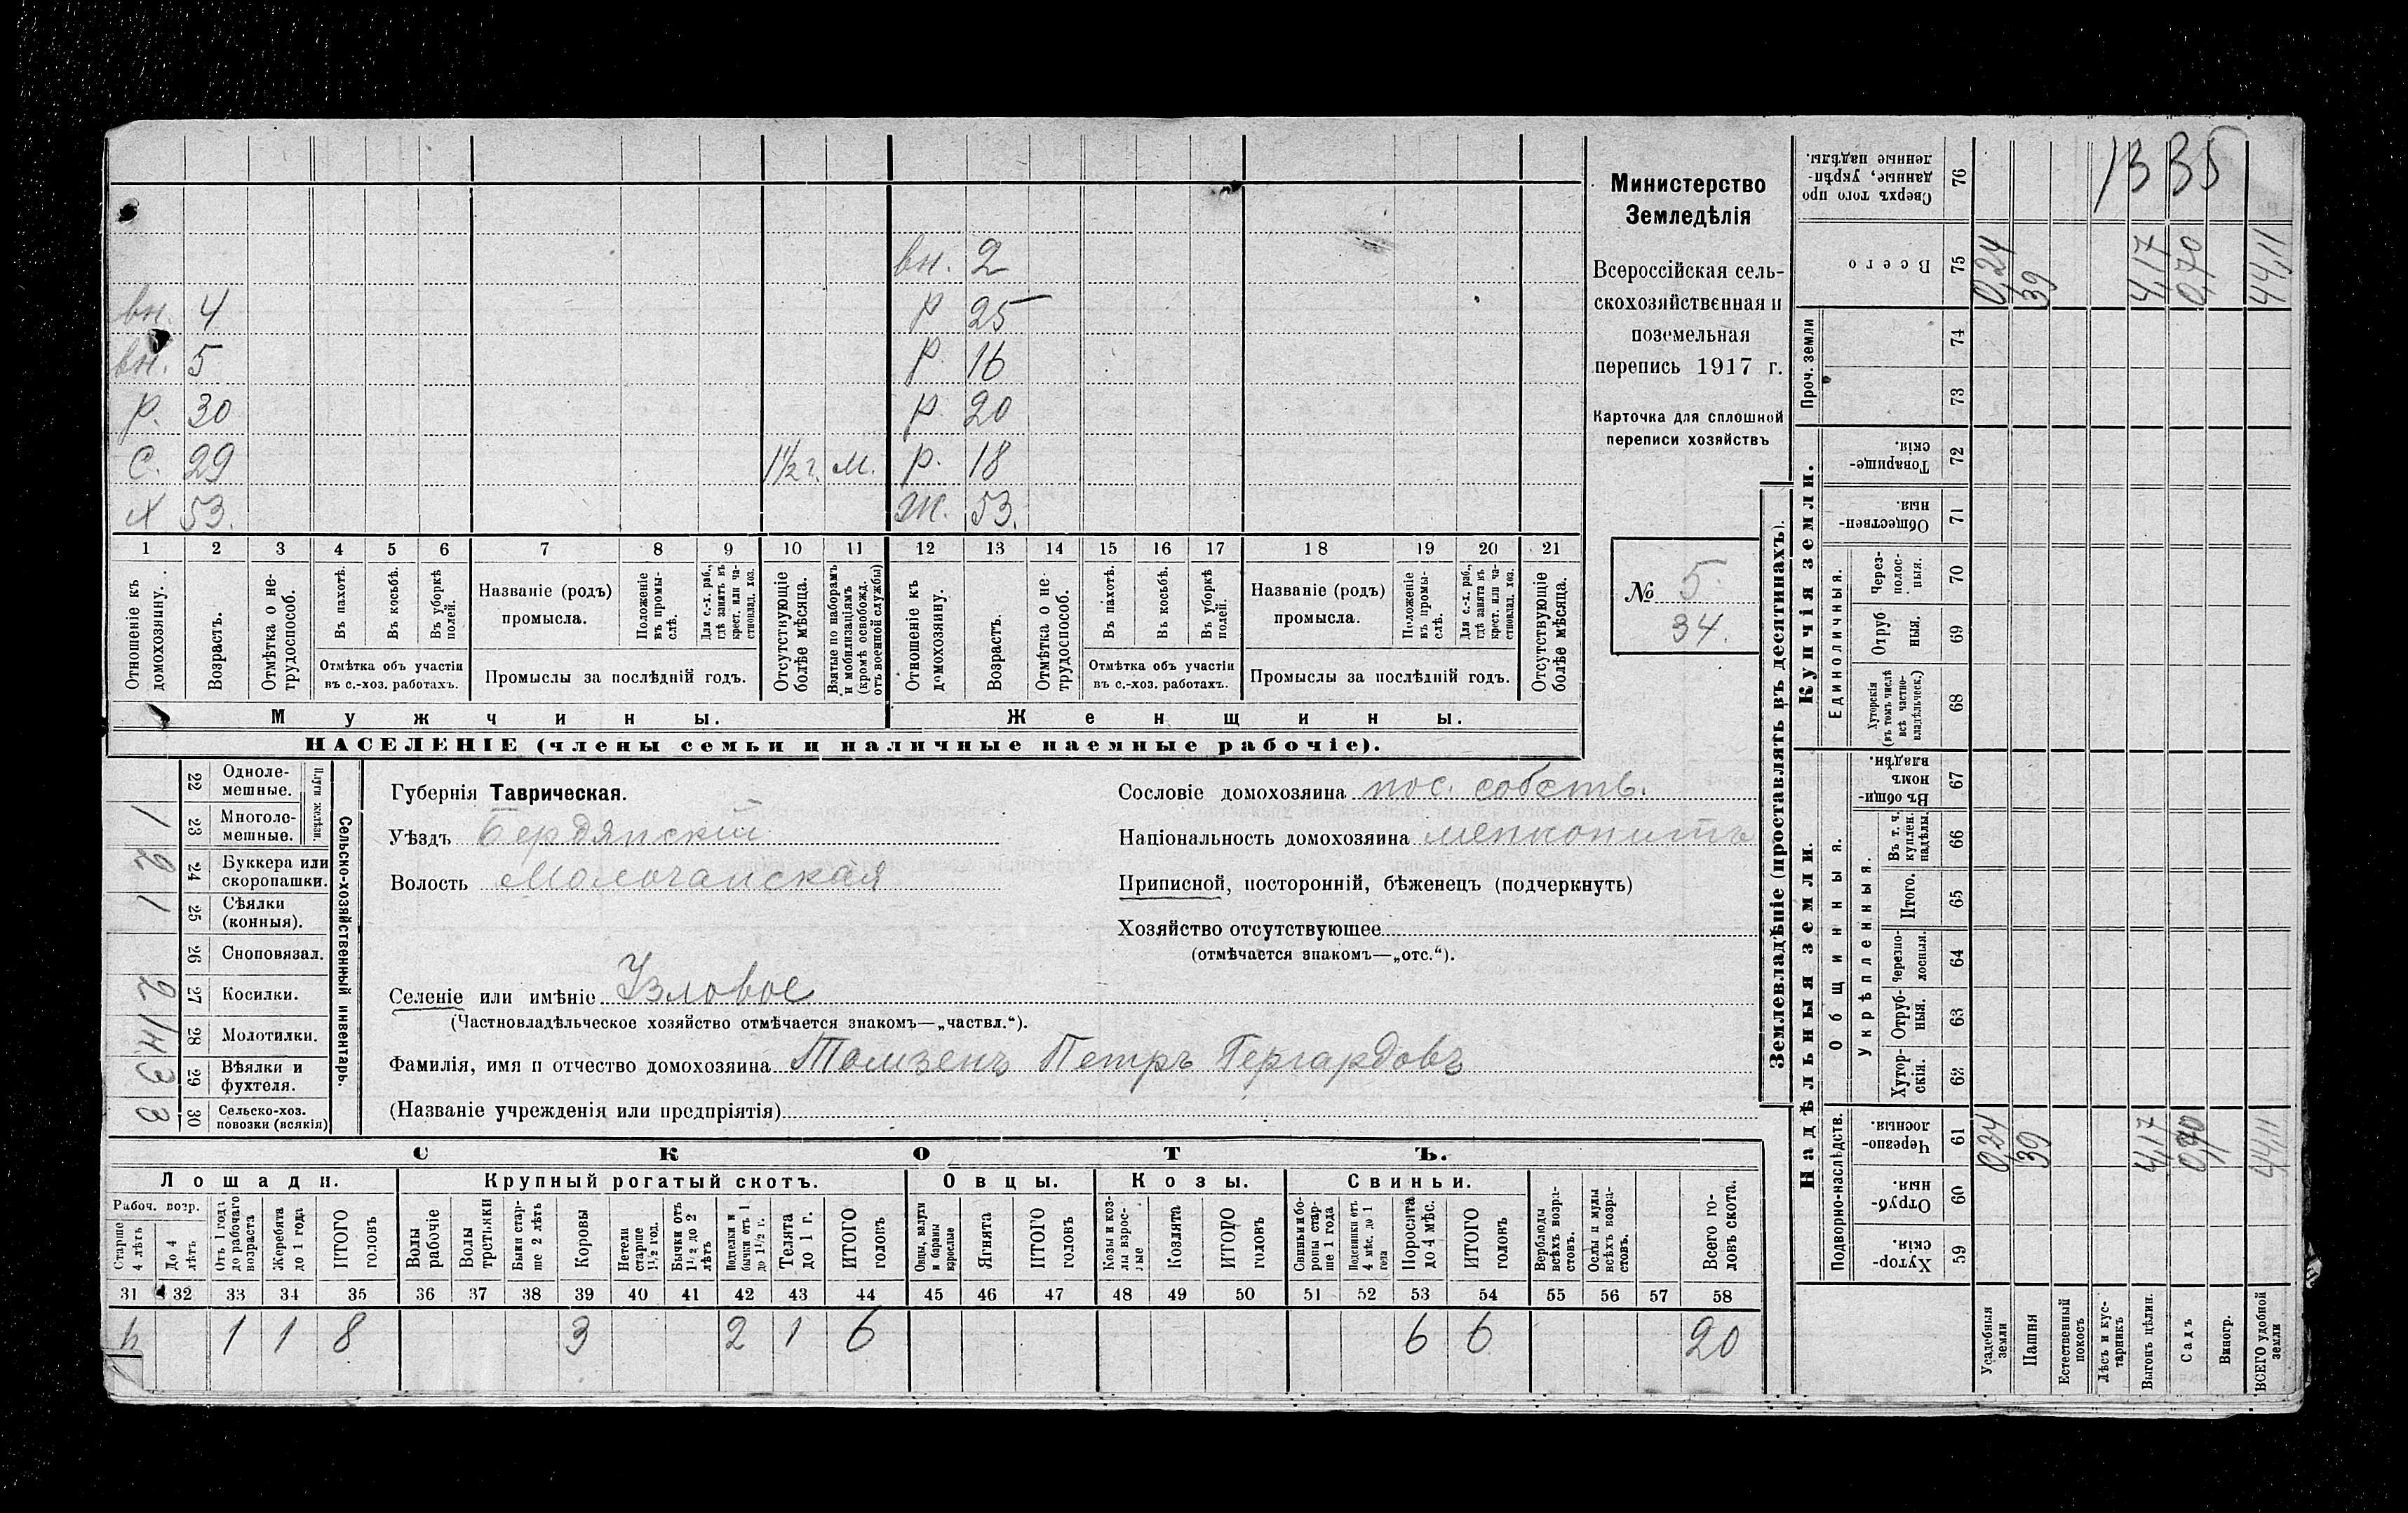 вн. 2
вн. 4 р 25
вн. 5 р. 16
р. 30 р. 20
с. 29 1½ г. м. р. 18
х 53. ж. 53.
1 2 3 4 5 6 7 8 9 10 11 12 13 14 15 16 17 18 19 20 21
Отношеніе къ домохозяину.
Возрастъ.
Отмѣтка о нетрудоспособ.
Въ пахотѣ.
Въ косьбѣ.
Въ уборкѣ полей.
Отмѣтка объ участіи
въ с.-хоз. работахъ.
Названіе (родъ)
промысла.
Положеніе въ промыслѣ.
Для с.-х. раб., гдѣ занятъ въ крест. или частновлад. хоз.
Промыслы за послѣдній годъ.
Отсутствующіе болѣе мѣсяца.
Взятые по наборамъ и мобилизаціямъ (кромѣ освобожд. отъ военной службы)
Отношеніе къ домохозяину.
Возрастъ.
Отмѣтка о нетрудоспособ.
Въ пахотѣ.
Въ косьбѣ.
Въ уборкѣ полей.
Отмѣтка объ участіи
въ с.-хоз. работахъ.
Названіе (родъ)
промысла.
Положеніе въ промыслѣ.
Для с.-х. раб., гдѣ занята въ крест. или частновлад. хоз.
Промыслы за послѣдній годъ.
Отсутствующіе болѣе мѣсяца.
Мужчины. Женщины.
НАСЕЛЕНІЕ (члены семьи и наличные наемные рабочіе).
Министерство
Земледѣлія
Всероссійская сель-
скохозяйственная и
поземельная
перепись 1917 г.
Карточка для сплошной
переписи хозяйствъ
№ 5.
34.
Сельско-хозяйственный инвентарь.
Плуги желѣзн.
22 Однолемешные.
1 23 Многолемешные.
2 24 Буккера или скоропашки.
1 25 Сѣялки (конныя).
26 Сноповязал.
2 27 Косилки.
28 Молотилки.
3 29 Вѣялки и фухтеля.
3 30 Сельско-хоз. повозки (всякія)
Губернія Таврическая.
Уѣздъ Бердянскій
Волость Молочанская
Селеніе или имѣніе Узловое
(Частновладѣльческое хозяйство отмѣчается знакомъ—„частвл.“).
Фамилія, имя и отчество домохозяина Томзенъ Петръ Гергардовъ
(Названіе учрежденія или предпріятія)
Сословіе домохозяина пос. собств.
Національность домохозяина менонитъ
Приписной, посторонній, бѣженецъ (подчеркнуть)
Хозяйство отсутствующее
(отмѣчается знакомъ—„отс.“).
СКОТЪ.
Лошади. Крупный рогатый скотъ. Овцы. Козы. Свиньи.
Рабоч. возр.
Старше 4 лѣтъ
До 4 лѣтъ
Отъ 1 года до рабочаго возраста
Жеребята до 1 года
ИТОГО головъ
Волы рабочіе
Волы третьяки
Быки старше 2 лѣтъ
Коровы
Нетели старше 1½ год.
Бычки отъ 1½ до 2 лѣтъ
Подтелки и бычки отъ 1 до 1½ г.
Телята до 1 г.
ИТОГО головъ
Овцы, валухи и бараны взрослые
Ягнята
ИТОГО головъ
Козы и козлы взрослые
Козлята
ИТОГО головъ
Свиньи и боровы старше 1 года
Подсвинки отъ 4 мѣс. до 1 года
Поросята до 4 мѣс.
ИТОГО головъ
Верблюды всѣхъ возрастовъ.
Ослы и мулы всѣхъ возрастовъ.
Всего головъ скота.
31 32 33 34 35 36 37 38 39 40 41 42 43 44 45 46 47 48 49 50 51 52 53 54 55 56 57 58
1 1 8 3 2 1 6 6 6 20
Землевладѣніе (проставлять въ десятинахъ).
1335
76 Сверхъ того проданные, укрѣпленные надѣлы.
75 Всего 0,24 39 4,17 0,70 44,11
Проч. земли
74
73
Купчія земли.
72 Товарищескія.
71 Общественныя.
Единоличныя.
70 Черезполосныя.
69 Отрубныя.
68 Хуторскія (въ томъ числѣ всѣ частновладѣльческ.)
Надѣльныя земли.
Общинныя.
67 Въ общинномъ владѣн.
Укрѣпленныя.
66 Въ т. ч. куплен. надѣлы.
65 Итого.
64 Черезполосныя.
63 Отрубныя.
62 Хуторскія.
Подворно-наслѣдств.
61 Черезполосныя. 0,24 39 4,17 0,70 44,11
60 Отрубныя.
59 Хуторскія.
Усадебныя земли
Пашня
Естественный покосъ
Лѣсъ и кустарникъ
Выгонъ цѣлин.
Садъ
Виногр.
ВСЕГО удобной земли